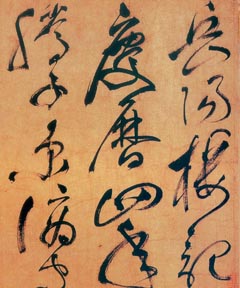 岳陽樓記
慶曆四年
滕子京謫守